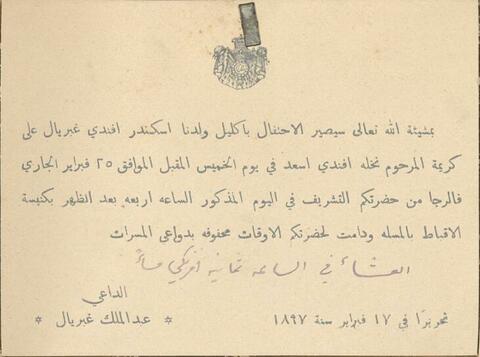 بمشيئة الله تعالى سيصير الاحتفال باكليل ولدنا اسكندر افندي غبريال على
كريمة المرحوم نخله افندي اسعد في يوم الخميس المقبل الموافق ٢٥ فبراير الجاري
فالرجا من حضرتكم التشريف في اليوم المذكور الساعه اربعه بعد الظهر بكنيسة
الاقباط بالمسله ودامت لحضرتكم الاوقات محفوفه بدواعي المسرات
العشاء في الساعة ثمانية افرنكي مساءً
الداعي
تحريرًا في ١٧ فبراير سنة ١٨٩٧ * عبد الملك غبريال *